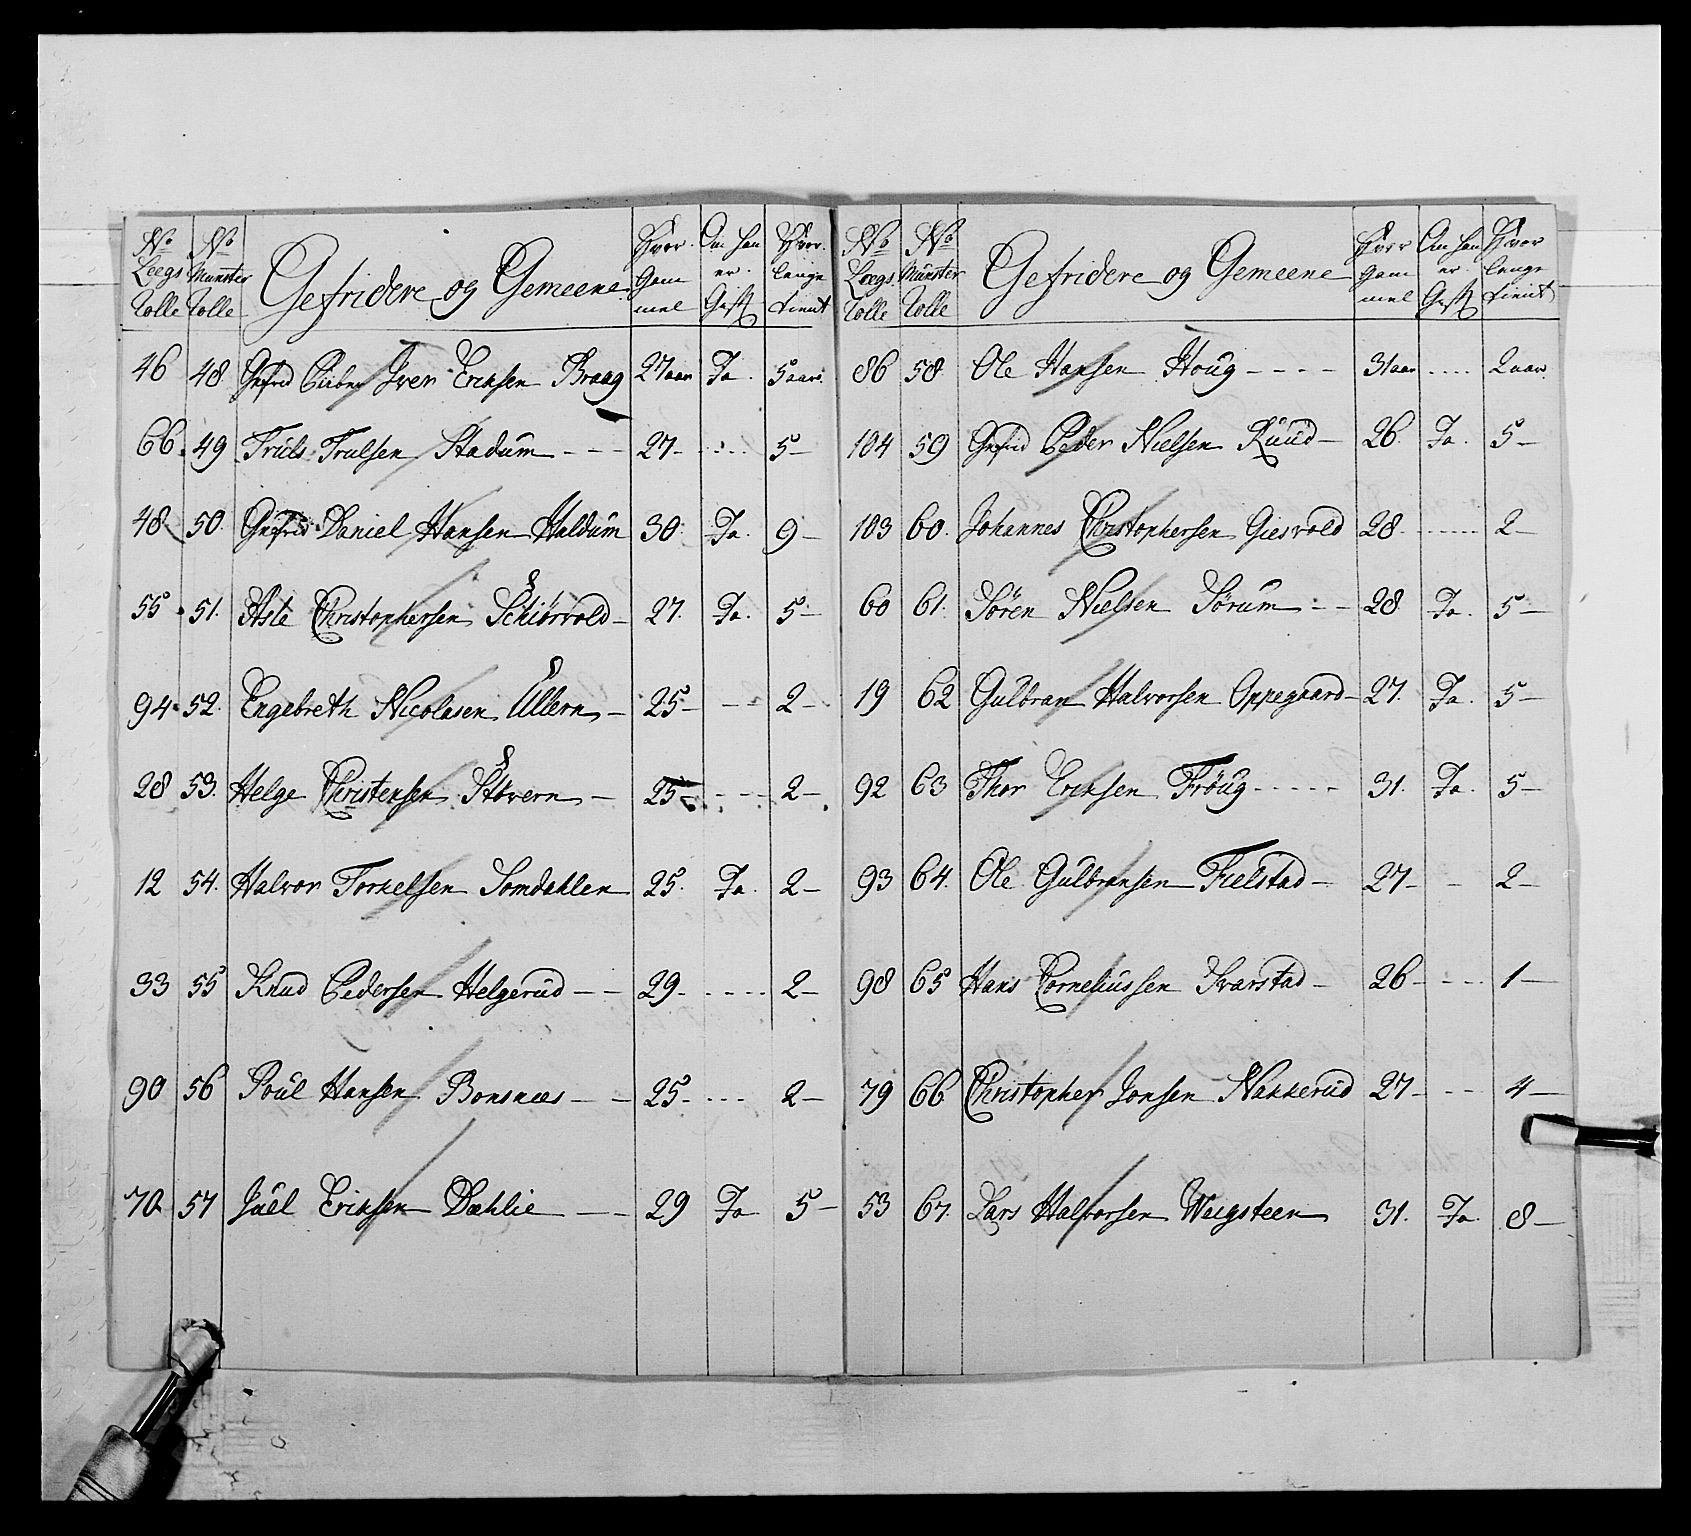 No Lægs Rolle | No Münster Rolle | Gefridere og Gemeene | Hvor Gammel | Om han er Gift | Hvor lenge tient
46 | 48. | Gefrid Piber Iver Ericksen Braag | 27 aar | Ja. | 5 aar.
66. | 49 | Truls Trulsen Stadum --- | 27- | .... | 5-
48 | 50. | Gefrid Daniel Hansen Haldum | 30. | Ja. | 9-
55. | 51. | Aste Christophersen Schiörvold- | 27. | Ja. | 5-
94. | 52. | Engebreth Nicolasen Ullern- | 25- | --- | 2-
28 | 53. | Helge Christensen Stövern- | 25- | ---- | 2-
12 | 54. | Halvor Torkelsen Somdahlen | 25. | Ja. | 2-
33 | 55 | Knud Pedersen Helgerud -- | 29- | ---- | 2-
90 | 56 | Poul Hansen Bonsnæs -- | 25- | --- | 2-
70 | 57 | Juel Ericksen Dæhlie -- | 29 | Ja | 5-
No Lægs Rolle | No Münster Rolle | Gefridere og Gemeene | Hvor Gammel | Om han er Gift | Hvor lenge tient
86 | 58 | Ole Hansen Houg ---- | 31 aar | .... | 2 aar.
104 | 59 | Gefrid Peder Nielsen Ruud- | 26. | Ja. | 5-
103 | 60. | Johannes Christophersen Giesvold | 28. | ---- | 2-
60 | 61. | Sören Nielsen Sörum -- | 28 | Ja. | 5-
19 | 62 | Gulbran Halvorsen Oppegaard- | 27. | Ja. | 5-
92 | 63 | Thor Ericksen Fröug ----- | 31. | Ja. | 5-
93 | 64. | Ole Gulbransen Fielstad- | 27- | - | 2-
98 | 65 | Hans Corneliussen Svarstad- | 26- | --- | 1-
79 | 66 | Christopher Jonsen Nakkerud | 27- | -- | 4-
53 | 67. | Lars Halvorsen Weigsteen | 31. | Ja. | 8-